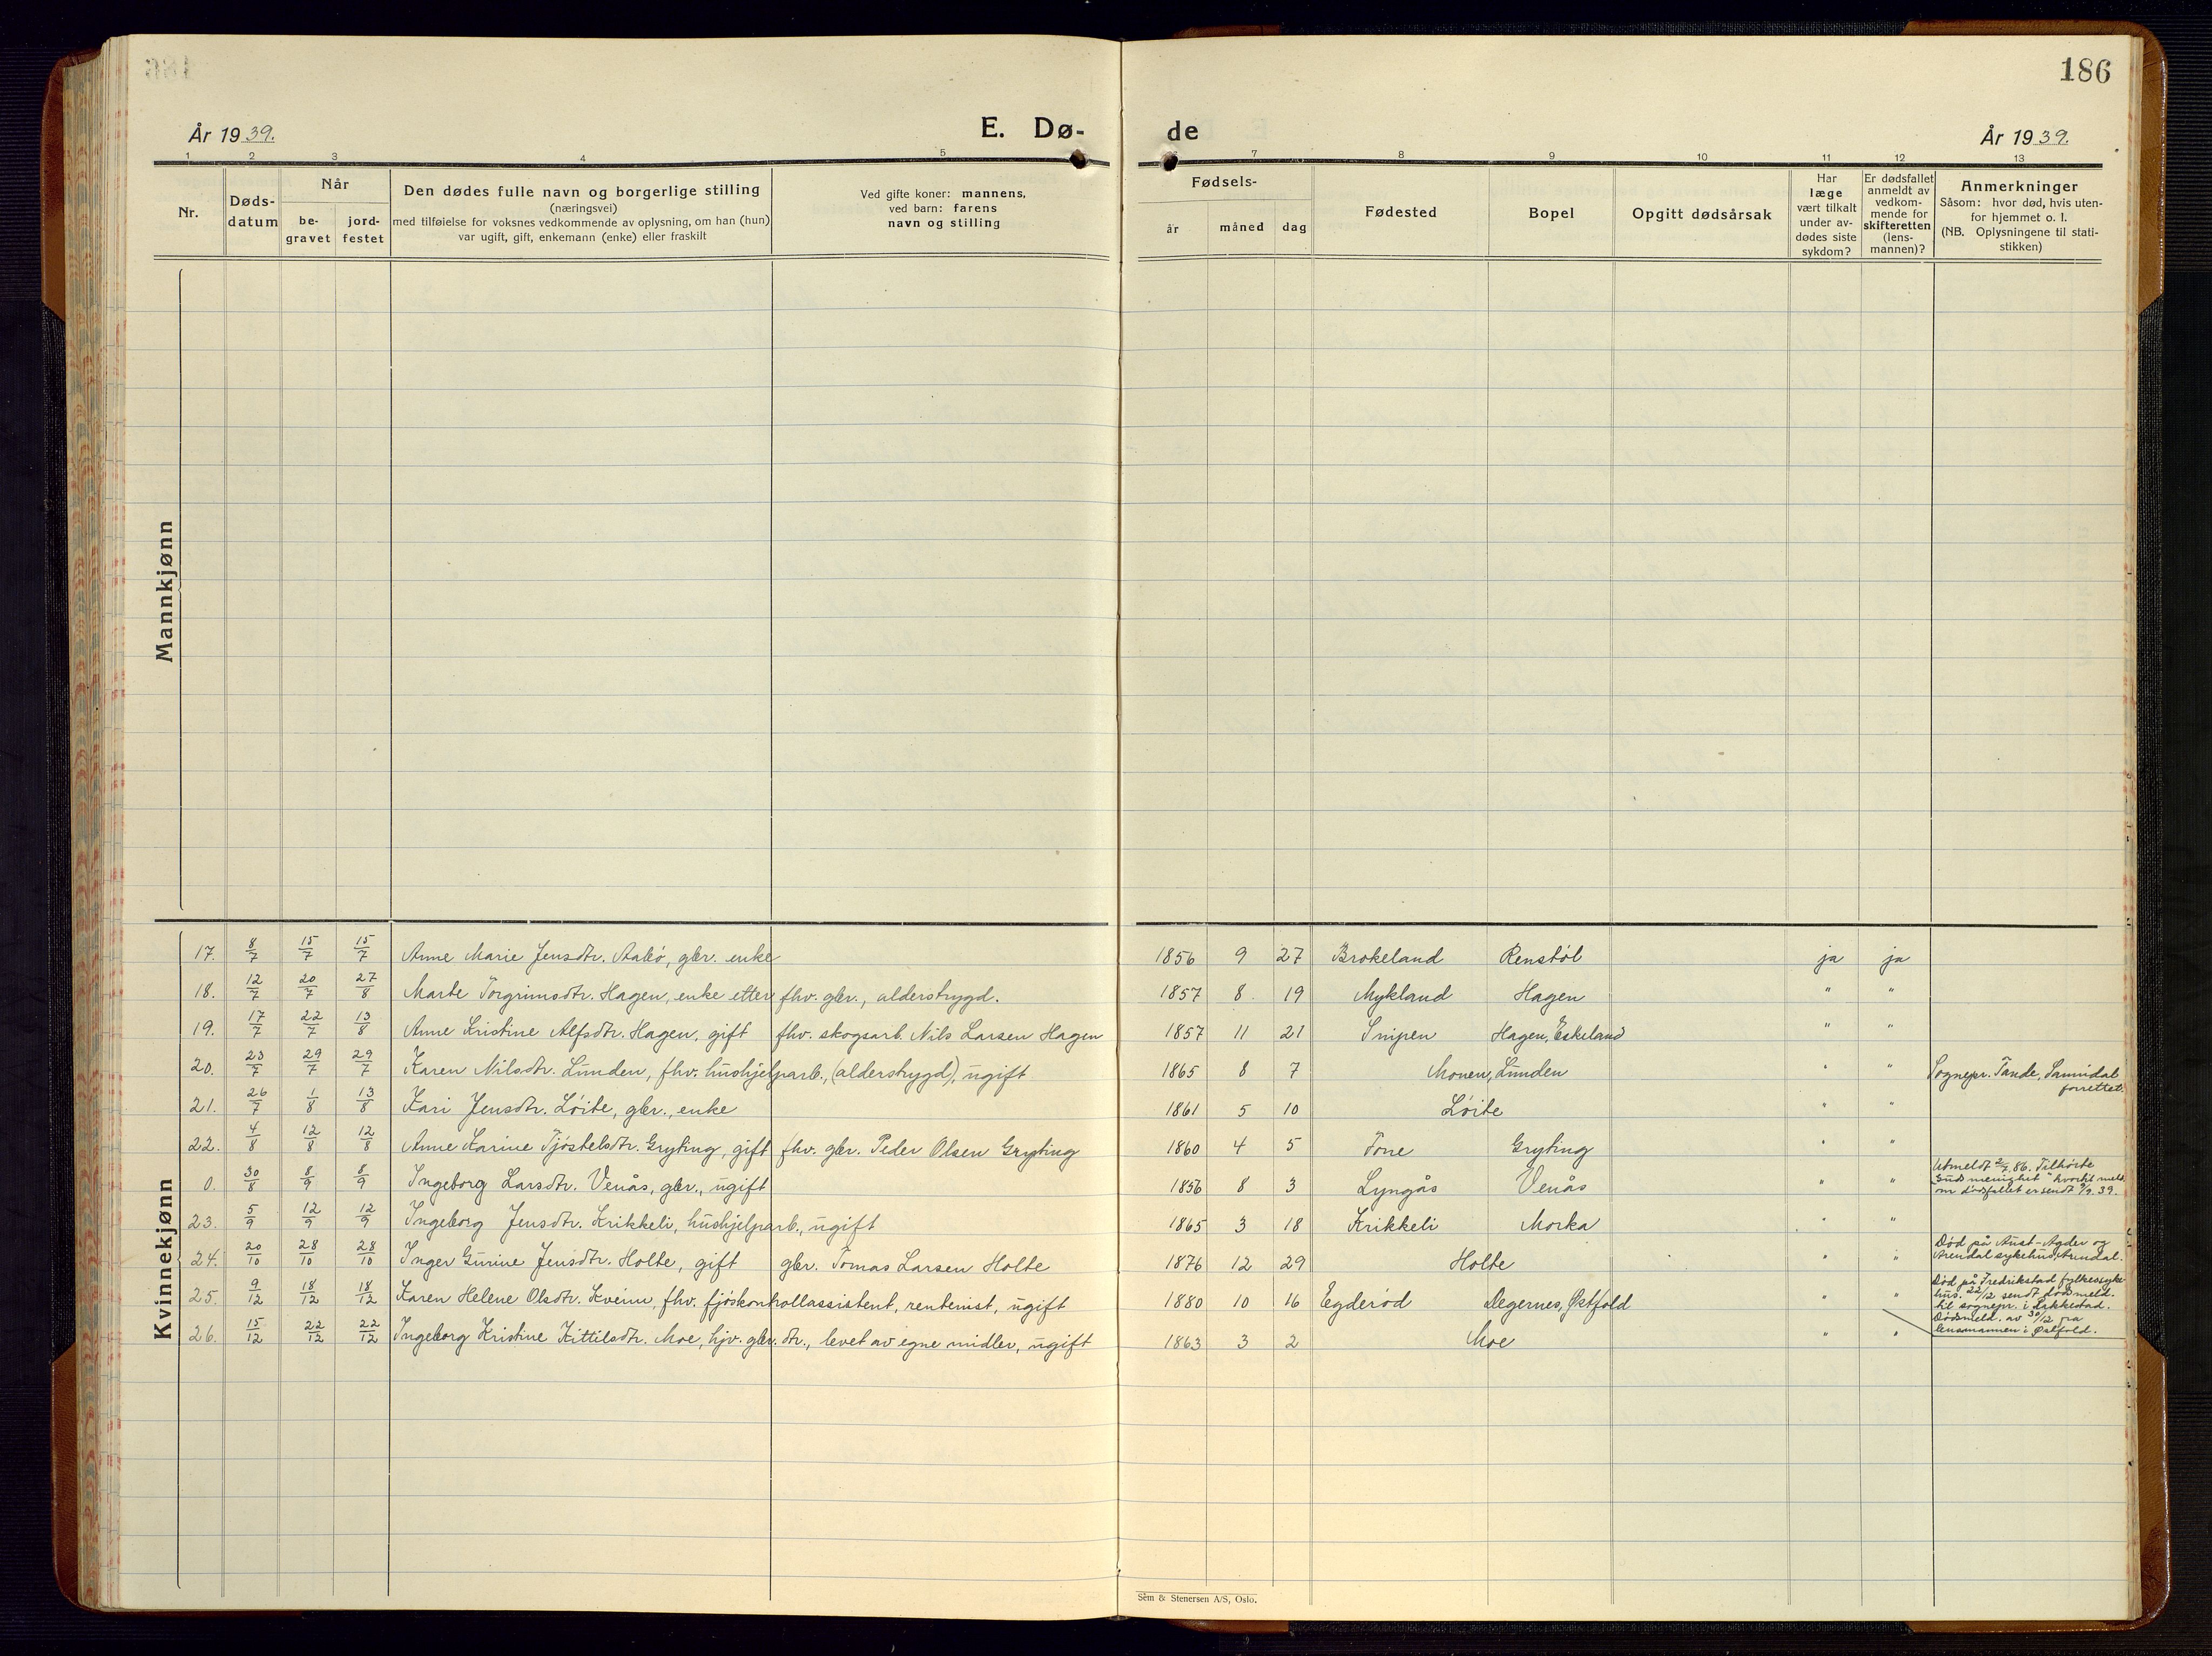 186
År 1939.
E. Dø-
de
År 1939.
1 2 3 4 5 7 8 9 10 11 12 13
Nr.
Døds-
datum
Når
be-
gravet
jord-
festet
Den dødes fulle navn og borgerlige stilling
(næringsvei)
med tilføielse for voksnes vedkommende av oplysning, om han (hun)
var ugift, gift, enkemann (enke) eller fraskilt
Ved gifte koner: mannens,
ved barn: farens
navn og stilling
Fødsels-
år
måned
dag
Fødested
Bopel
Opgitt dødsårsak
Har
læge
vært tilkalt
under av-
dødes siste
sykdom?
Er dødsfallet
anmeldt av
vedkom-
mende for
skifteretten
(lens-
mannen)?
Anmerkninger
Såsom: hvor død, hvis uten-
for hjemmet o. l.
(NB. Oplysningene til stati-
stikken)
Mannkjønn
Kvinnekjønn
17. 8/7 15/7 15/7 Anne Marie Jensdtr. Aabö, gbr. enke 1856 9 27 Brokeland Renstöl ja ja
18. 12/7 20/7 27/8 Marte Torgrimsdtr. Hagen, enke etter fhv. gbr., alderstrygd. 1857 8 19 Mykland Hagen " "
19. 17/7 22/7 13/8 Anne Kristine Alfsdtr. Hagen, gift fhv. skogsarb. Nils Larsen Hagen 1857 11 21 Snipen Hagen, Eskeland " "
20. 23/7 29/7 29/7 Karen Nilsdtr. Lunden, fhv. hushjelparb., (alderstrygd), ugift 1865 8 7 Monen, Lunden " " Sognepr. Tande, Sannidal
forrettet.
21. 26/7 1/8 13/8 Kari Jensdtr. Löite, gbr., enke 1861 5 10 Löite " "
22. 4/8 12/8 12/8 Anne Karine Tjöstelsdtr. Gryting, gift fhv. gbr. Peder Olsen Gryting 1860 4 5 Tone Gryting " "
0. 30/8 8/9 8/9 Ingeborg Larsdtr. Venås, gbr., ugift 1856 8 3 Lyngås Venås " " Utmeldt 2/7. 86. Tilhörte
"Guds menighet" hvortil meld.
om dödsfallet er sendt 9/9. 39.
23. 5/9 12/9 12/9 Ingeborg Jensdtr. Krikkeli, hushjelparb., ugift 1865 3 18 Krikkeli Morka " "
24. 20/10 28/10 28/10 Inger Gurine Jensdtr. Holte, gift gbr. Tomas Larsen Holte 1876 12 29 Holte " " Död på Aust-Agder og
Arendal sykehus, Arendal.
25. 9/12 18/12 18/12 Karen Helene Olsdtr. Kveim, fhv. fjöskontrollassistent, rentenist, ugift 1880 10 16 Egderöd Degernes, Østfold " " Död på Fredrikstad fylkessyke
hus. 22/12 sendt dödsmeld.
til sognepr. i Rakkestad.
Dödsmeld. av 30/12 fra
lensmannen i Østfold.
26. 15/12 22/12 22/12 Ingeborg Kristine Kittilsdtr. Moe, hjv. gbr. dtr., levet av egne midler, ugift 1863 3 2 Moe " "
Sèm & Stenersen A/S, Oslo.